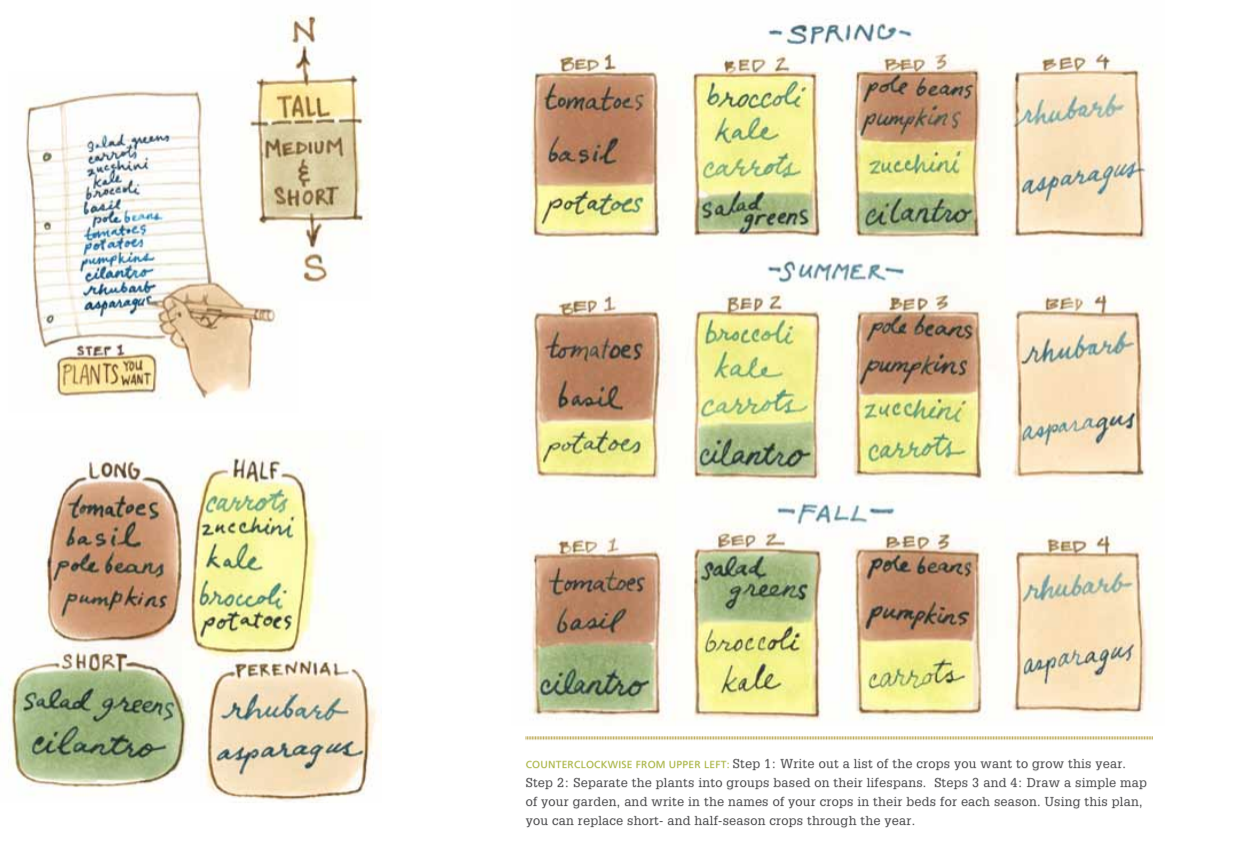 salad greens
carrots
zucchini
kale
broccoli
basil
pole beans
tomatoes
potatoes
pumpkins
cilantro
rhubarb
asparagus
STEP 1
PLANTS YOU WANT
N
TALL
MEDIUM
&
SHORT
S
LONG
tomatoes
basil
pole beans
pumpkins
HALF
carrots
zucchini
kale
broccoli
potatoes
SHORT
salad greens
cilantro
PERENNIAL
rhubarb
asparagus
-SPRING-
BED 1
tomatoes
basil
potatoes
BED 2
broccoli
kale
carrots
salad
greens
BED 3
pole beans
pumpkins
zucchini
cilantro
BED 4
rhubarb
asparagus
-SUMMER-
BED 1
tomatoes
basil
potatoes
BED 2
broccoli
kale
carrots
cilantro
BED 3
pole beans
pumpkins
zucchini
carrots
BED 4
rhubarb
asparagus
-FALL-
BED 1
tomatoes
basil
cilantro
BED 2
salad
greens
broccoli
kale
BED 3
pole beans
pumpkins
carrots
BED 4
rhubarb
asparagus
COUNTERCLOCKWISE FROM UPPER LEFT: Step 1: Write out a list of the crops you want to grow this year.
Step 2: Separate the plants into groups based on their lifespans. Steps 3 and 4: Draw a simple map
of your garden, and write in the names of your crops in their beds for each season. Using this plan,
you can replace short- and half-season crops through the year.